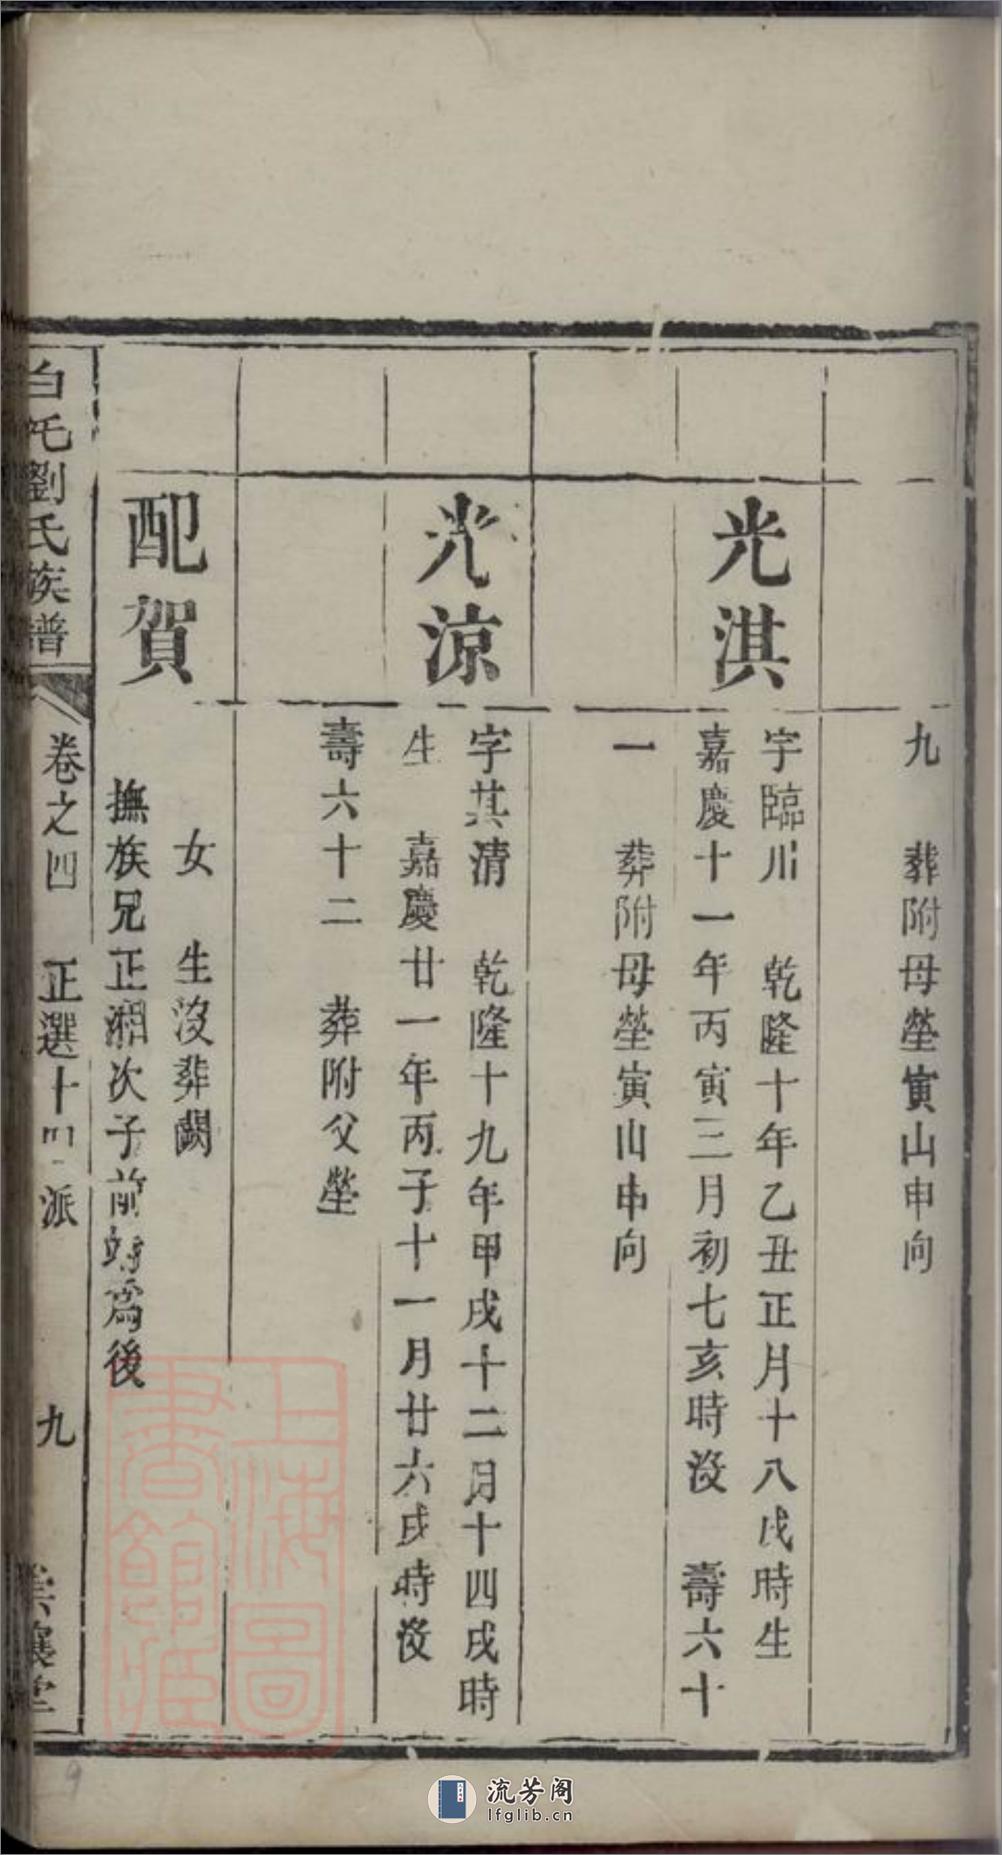 九 葬附母塋寅山申向
光淇
字臨川 乾隆十年乙丑正月十八戌時生
嘉慶十一年丙寅三月初七亥時沒 壽六十
一 葬附母塋寅山申向
光涼
字其清 乾隆十九年甲戌十二月十四戌時
生 嘉慶廿一年丙子十一月廿六戌時沒
壽六十二 葬附父塋
配賀
女 生沒葬闕
撫族兄正湘次子前 為後
白 劉氏族譜 卷之四 正選十四派 九 堂
上海圖書館藏
9
流芳阁
lfglib.cn